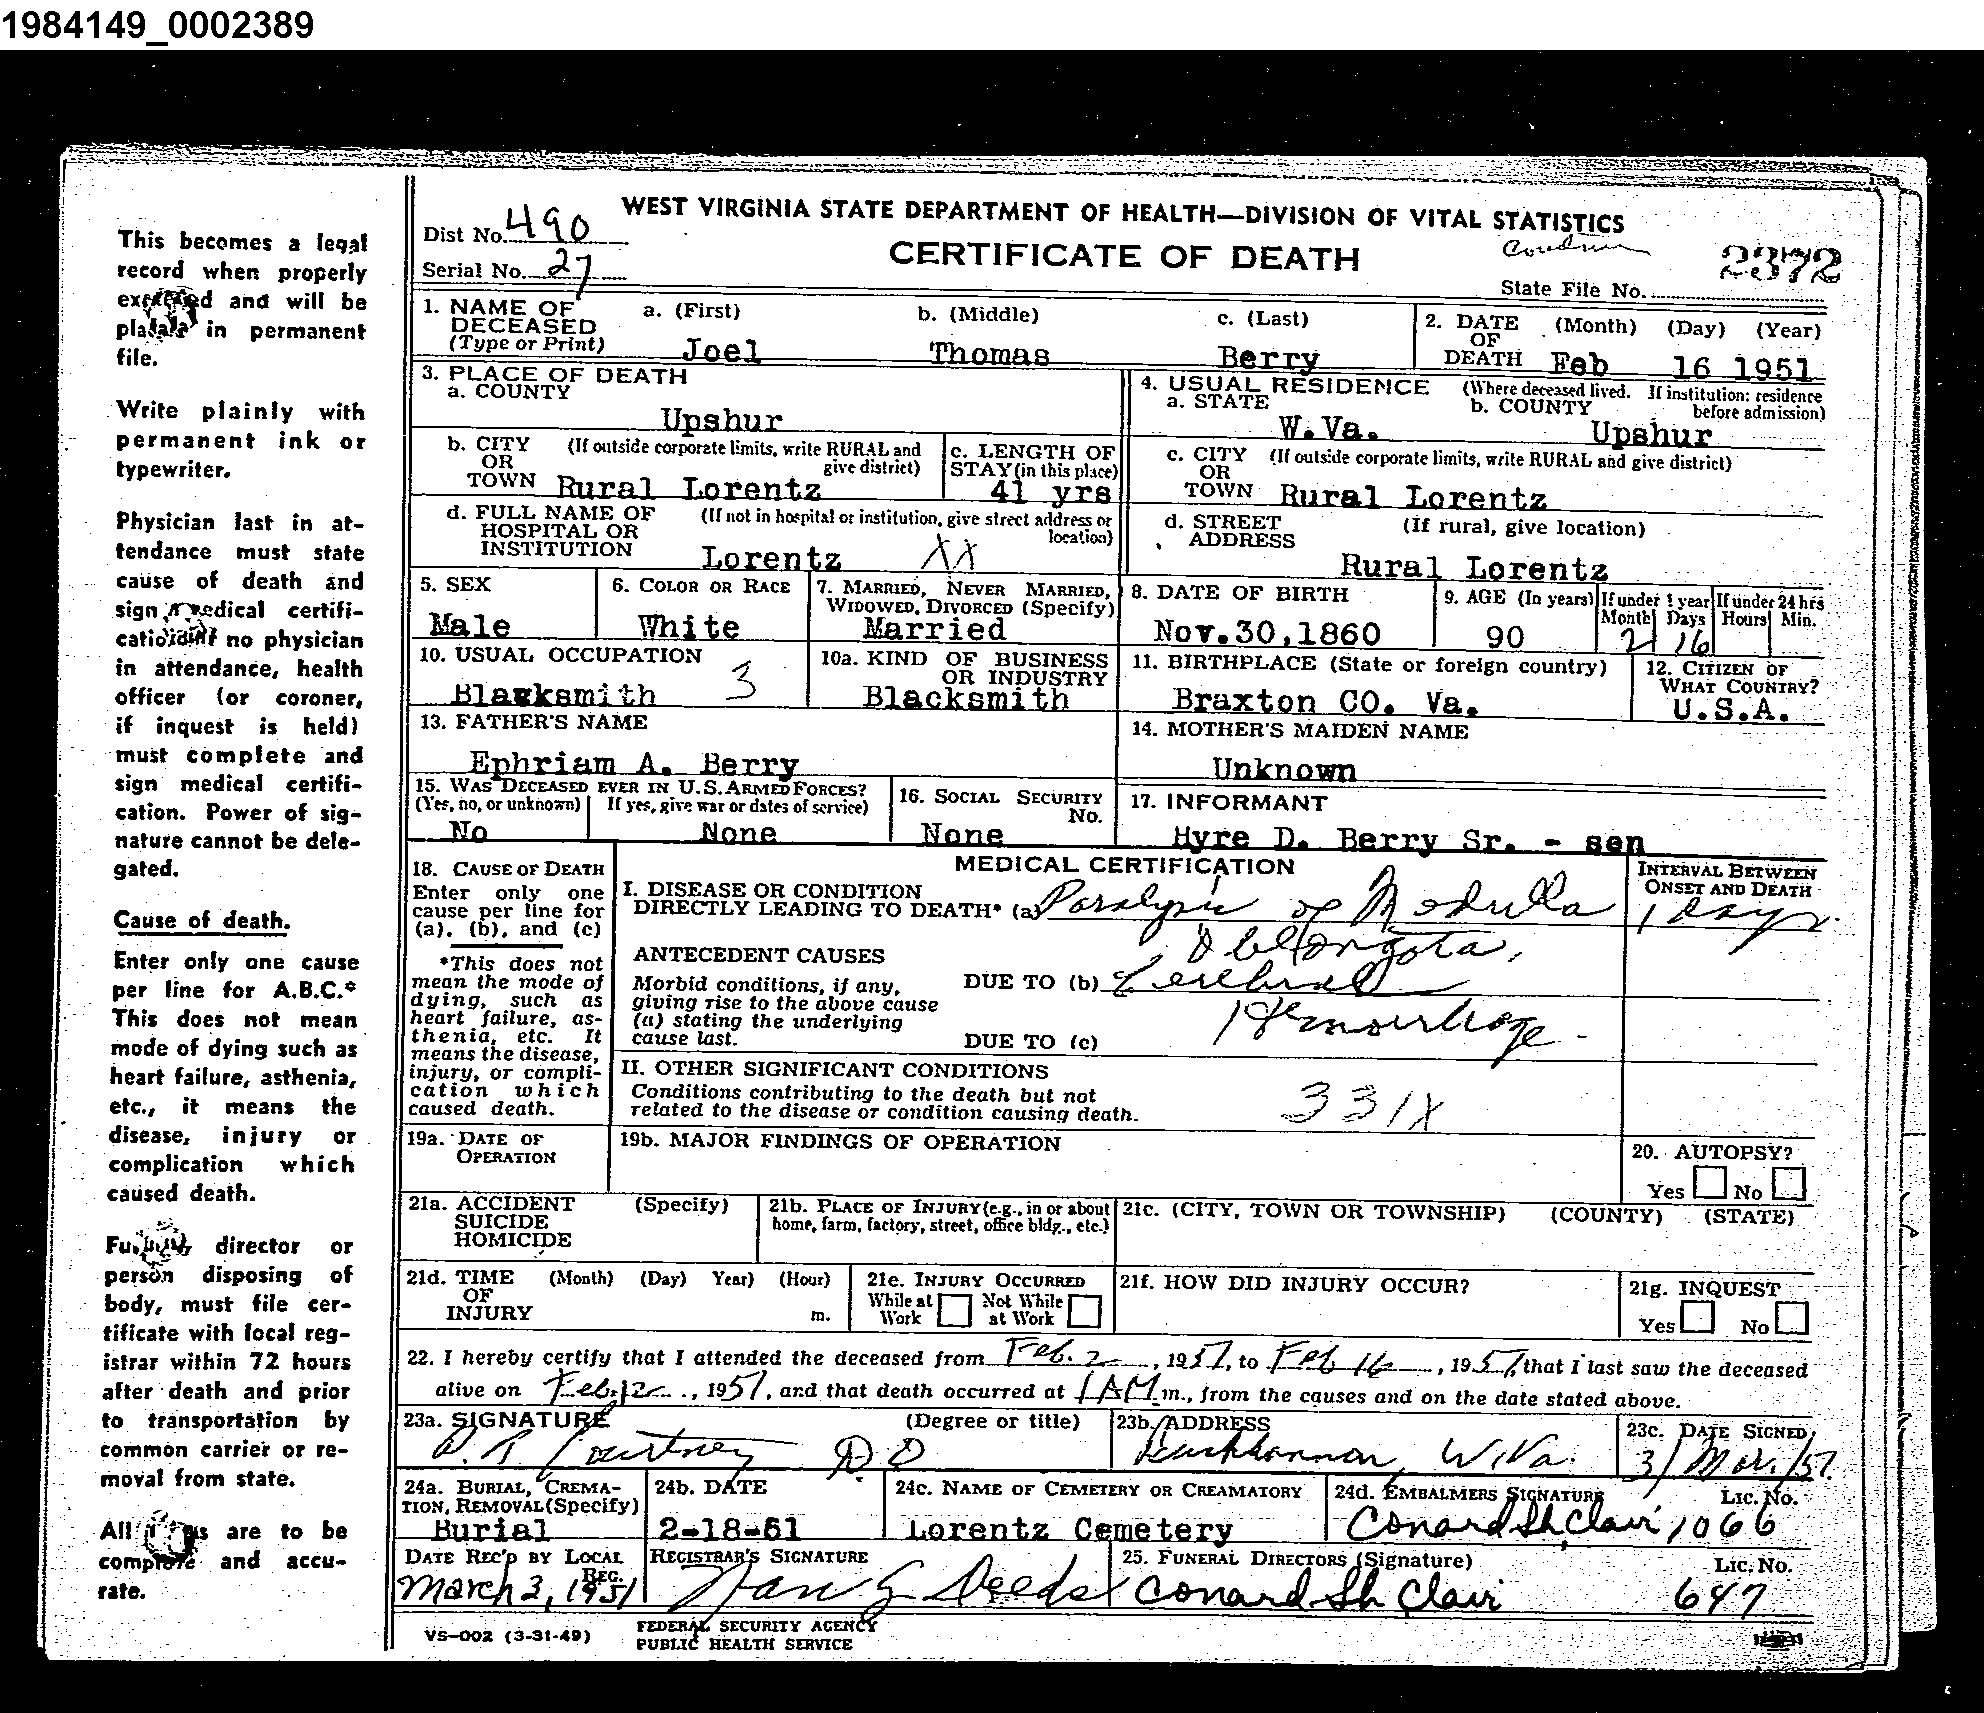 1984149_0002389
This becomes a legal
record when properly
and will be
in permanent
file.
Write plainly with
permanent ink or
typewriter.
Physician last in at-
tendance must state
cause of death and
sign medical certifi-
no physician
in attendance, health
officer (or coroner,
if inquest is held)
must complete and
sign medical certifi-
cation. Power of sig-
nature cannot be dele-
gated.
Cause of death.
Enter only one cause
per line for A.B.C.*
This does not mean
mode of dying such as
heart failure, asthenia,
etc., it means the
disease, injury or
complication which
caused death.
director or
person disposing of
body, must file cer-
tificate with local reg-
istrar within 72 hours
after death and prior
to transportation by
common carrier or re-
moval from state.
All are to be
complete and accu-
rate.
WEST VIRGINIA STATE DEPARTMENT OF HEALTH—DIVISION OF VITAL STATISTICS
Dist No. 490
CERTIFICATE OF DEATH
2372
Serial No. 27
State File No.
1. NAME OF DECEASED (Type or Print)
a. (First) b. (Middle) c. (Last)
Joel Thomas Berry
2. DATE OF DEATH (Month) (Day) (Year)
Feb 16 1951
3. PLACE OF DEATH
a. COUNTY
Upshur
4. USUAL RESIDENCE (Where deceased lived. If institution: residence before admission)
a. STATE b. COUNTY
W.Va. Upshur
b. CITY OR TOWN (If outside corporate limits, write RURAL and give district)
Rural Lorentz
c. LENGTH OF STAY (in this place)
41 yrs
c. CITY OR TOWN (If outside corporate limits, write RURAL and give district)
Rural Lorentz
d. FULL NAME OF HOSPITAL OR INSTITUTION (If not in hospital or institution, give street address or location)
Lorentz XX
d. STREET ADDRESS (If rural, give location)
Rural Lorentz
5. SEX
Male
6. COLOR OR RACE
White
7. MARRIED, NEVER MARRIED, WIDOWED, DIVORCED (Specify)
Married
8. DATE OF BIRTH
Nov.30,1860
9. AGE (In years)
90
If under 1 year Month Days
2 16
If under 24 hrs Hours Min.
10. USUAL OCCUPATION
Blacksmith 3
10a. KIND OF BUSINESS OR INDUSTRY
Blacksmith
11. BIRTHPLACE (State or foreign country)
Braxton CO. Va.
12. CITIZEN OF WHAT COUNTRY?
U.S.A.
13. FATHER'S NAME
Ephriam A. Berry
14. MOTHER'S MAIDEN NAME
Unknown
15. WAS DECEASED EVER IN U.S. ARMED FORCES?
(Yes, no, or unknown) If yes, give war or dates of service)
No None
16. SOCIAL SECURITY No.
None
17. INFORMANT
Hyre D. Berry Sr. - son
18. CAUSE OF DEATH
Enter only one
cause per line for
(a), (b), and (c)
*This does not
mean the mode of
dying, such as
heart failure, as-
thenia, etc. It
means the disease,
injury, or compli-
cation which
caused death.
MEDICAL CERTIFICATION
INTERVAL BETWEEN ONSET AND DEATH
I. DISEASE OR CONDITION
DIRECTLY LEADING TO DEATH* (a) Paralysis of Medulla 1 days
Oblongota,
ANTECEDENT CAUSES
Morbid conditions, if any,
giving rise to the above cause
(a) stating the underlying
cause last.
DUE TO (b) Cerebral
Hemorrhage
DUE TO (c)
II. OTHER SIGNIFICANT CONDITIONS
Conditions contributing to the death but not
related to the disease or condition causing death.
331X
19a. DATE OF OPERATION
19b. MAJOR FINDINGS OF OPERATION
20. AUTOPSY?
Yes No
21a. ACCIDENT SUICIDE HOMICIDE (Specify)
21b. PLACE OF INJURY (e.g., in or about home, farm, factory, street, office bldg., etc.)
21c. (CITY, TOWN OR TOWNSHIP) (COUNTY) (STATE)
21d. TIME OF INJURY (Month) (Day) Year) (Hour) m.
21e. INJURY OCCURRED
While at Work Not While at Work
21f. HOW DID INJURY OCCUR?
21g. INQUEST
Yes No
22. I hereby certify that I attended the deceased from Feb. 2, 1951, to Feb 16, 1951, that I last saw the deceased
alive on Feb. 12, 1951, and that death occurred at 1 AM m., from the causes and on the date stated above.
23a. SIGNATURE (Degree or title)
Courtney D O
23b. ADDRESS
Buckhannon, W.Va.
23c. DATE SIGNED
3/ Mar. /51
24a. BURIAL, CREMATION, REMOVAL (Specify)
Burial
24b. DATE
2-18-51
24c. NAME OF CEMETERY OR CREAMATORY
Lorentz Cemetery
24d. EMBALMERS SIGNATURE Lic. No.
Conard St. Clair 1066
DATE REC'D BY LOCAL REG.
March 3, 1951
REGISTRAR'S SIGNATURE
Deeds
25. FUNERAL DIRECTORS (Signature) Lic. No.
Conard St. Clair 647
VS-002 (3-31-49)
FEDERAL SECURITY AGENCY
PUBLIC HEALTH SERVICE